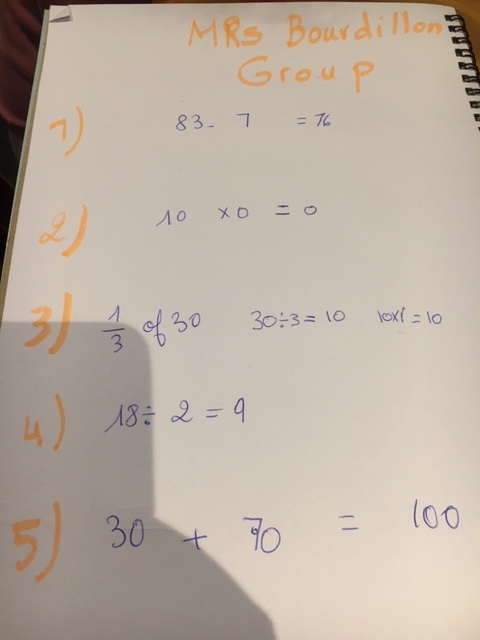 MRs Bourdillon
Group
1) 83 - 7 = 76
2) 10 x 0 = 0
3) 1/3 of 30 30÷3=10 10x1=10
4) 18÷ 2 = 9
5) 30 + 70 = 100